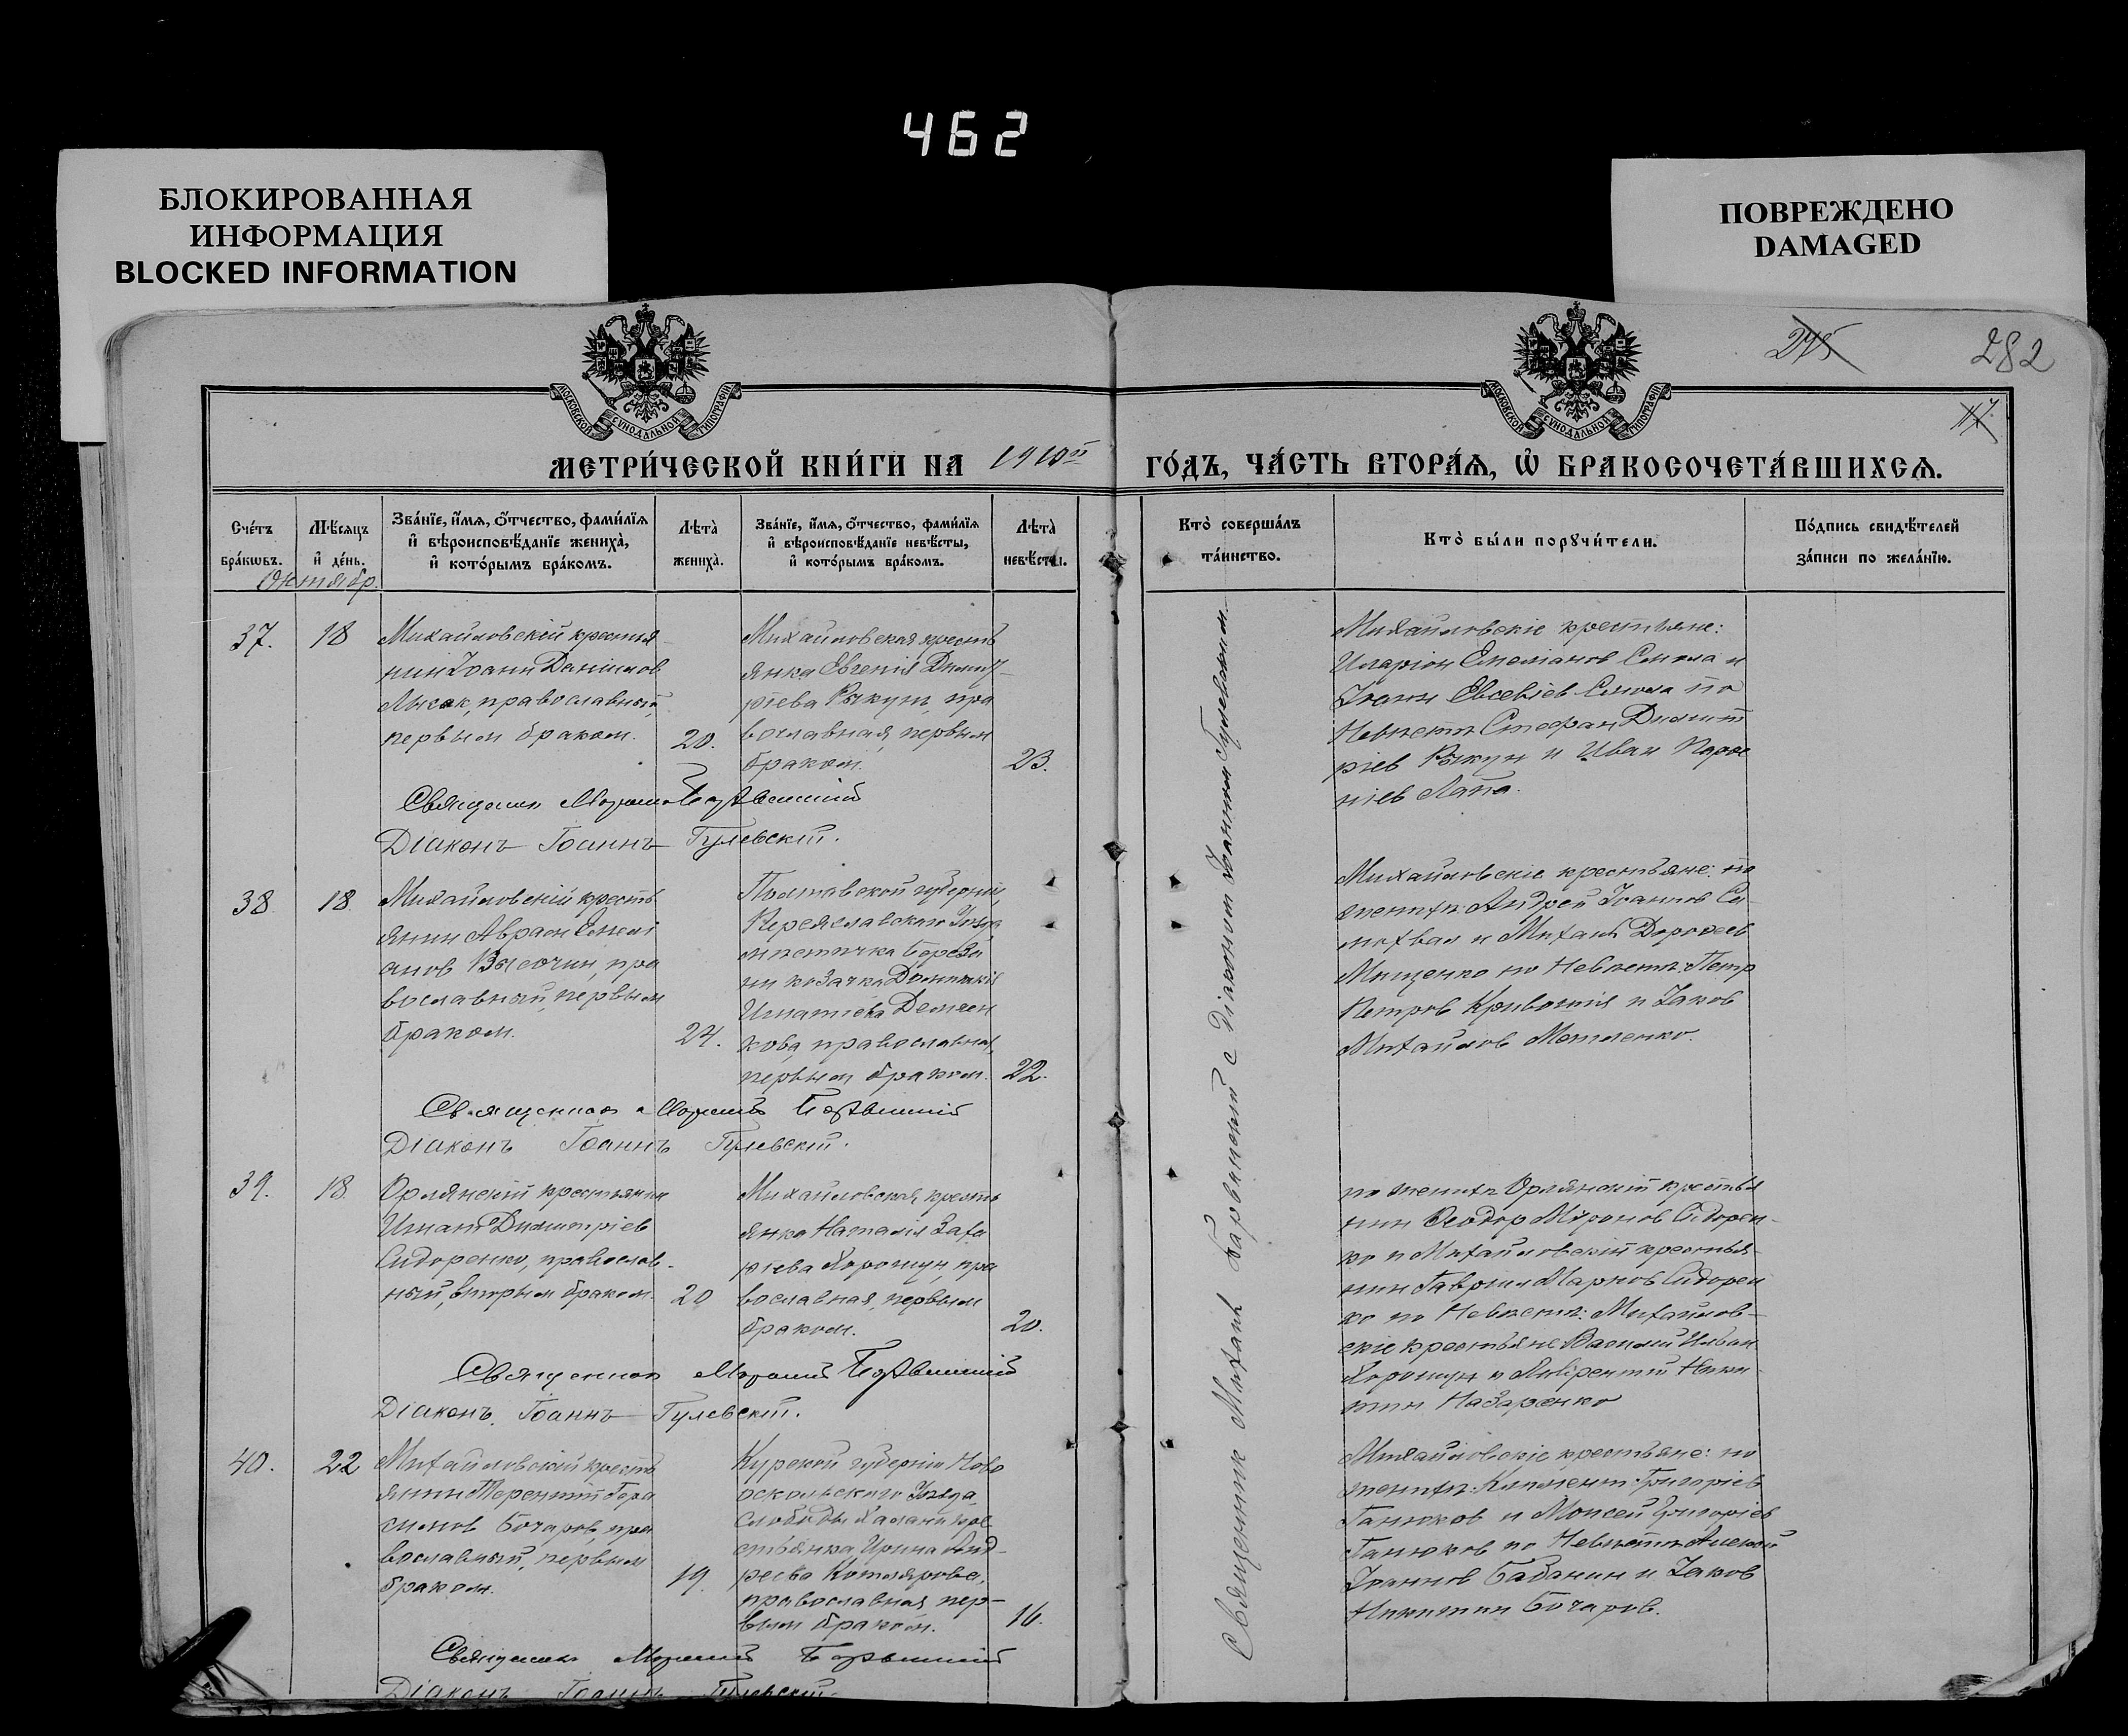 462
БЛОКИРОВАННАЯ
ИНФОРМАЦИЯ
BLOCKED INFORMATION
ПОВРЕЖДЕНО
DAMAGED
275
282
117
МОСКОВСКОЙ СѴНОДАЛЬНОЙ ТИПОГРАФІИ
МОСКОВСКОЙ СѴНОДАЛЬНОЙ ТИПОГРАФІИ
МЕТРИ́ЧЕСКОЙ КНИ́ГИ НА 1910й ГО́ДЪ, ЧА́СТЬ ВТОРА́Ѧ, Ѡ҆ БРАКОСОЧЕТА́ВШИХСѦ.
Сче́тъ
бра́кѡвъ.
Мѣ́сяцъ
и҆ де́нь.
Зва́нїе, и҆́мѧ, ѻ҆́тчество, фами́лїѧ
и҆ вѣроисповѣ́данїе жениха̀,
и҆ кото́рымъ бра́комъ.
Лѣта̀
жениха̀.
Зва́нїе, и҆́мѧ, ѻ҆́тчество, фами́лїѧ
и҆ вѣроисповѣ́данїе невѣ́сты,
и҆ кото́рымъ бра́комъ.
Лѣта̀
невѣ́сты.
Кто̀ соверша́лъ
та́инство.
Кто̀ бы́ли порꙋчи́тели.
По́дпись свидѣ́телей
за́писи по жела́нїю.
Октябр.
37.
18
Михайловскій кресть
нин Іоанн Даніилов
Лысак, православный,
первым браком.
20.
Михайловская кресть
янка Евгенія Димит
ріева Рякун, пра
вославная, первым
браком.
23.
Михайловскіе крестьяне:
Иларіон Емеліанов Смола и
Іоанн Евсевіев Смола по
Невѣстѣ Стефан Димит
ріев Рякун и Иван
ніев Лапа.
Священник
Діаконъ Іоаннъ Гулевскій.
38.
18
Михайловскій кресть
янин Авраам Емелі
анов Высочин, пра
вославный, первым
браком.
24.
Полтавской губерніи,
Переяславскаго Уѣзда
мѣстечка Береза
ни козачка Домникія
Игнатіева Демьян
кова, православная,
первым браком.
22.
Михайловскіе крестьяне: по
женихѣ Андрей Іоаннов Са
мохвал и Михаил Дорофеев
Мищенко по Невѣстѣ: Петр
Петров Кривошия и Іаков
Михайлов Мотленко.
Священник
Діаконъ Іоаннъ Гулевскій.
39.
18.
Орлянскій крестьянин
Игнат Димитріев
Сидоренко, православ-
ный, вторым браком.
20
Михайловская кресть
янка Наталія Заха
ріева Хорошун, пра
вославная, первым
браком.
20.
по женихѣ Орлянскій крестья
нин Феодор Міронов Сидорен-
ко и Михайловскій крестья-
нин Гавріил Марков Сидорен
ко по Невѣстѣ: Михайлов-
скіе крестьяне Василий Иван
Хорошун и Лаврентий Ники-
тин Назаренко
Священник
Діаконъ Іоаннъ Гулевскій.
40.
22
Михайловскій кресть
янин Терентий Гера
симов Бочаров, пра
вославный, первым
браком.
19.
Курской губерніи Ново
оскольскаго Уѣзда,
слободы Халани кре
стьянка Ирина Анд-
реева Котлярова,
православная пер-
вым браком.
16.
Михайловскіе крестьяне: по
женихѣ: Климент Григоріев
Ганюков и Моисей Григоріев
Ганюков по Невѣстѣ Алексий
Іоаннов Бабанин и Іаков
Никитин Бочаров.
Священник
Діаконъ Іоаннъ Гулевскій.
Священник Михаил с Діаконом Іоанном Гулевским.